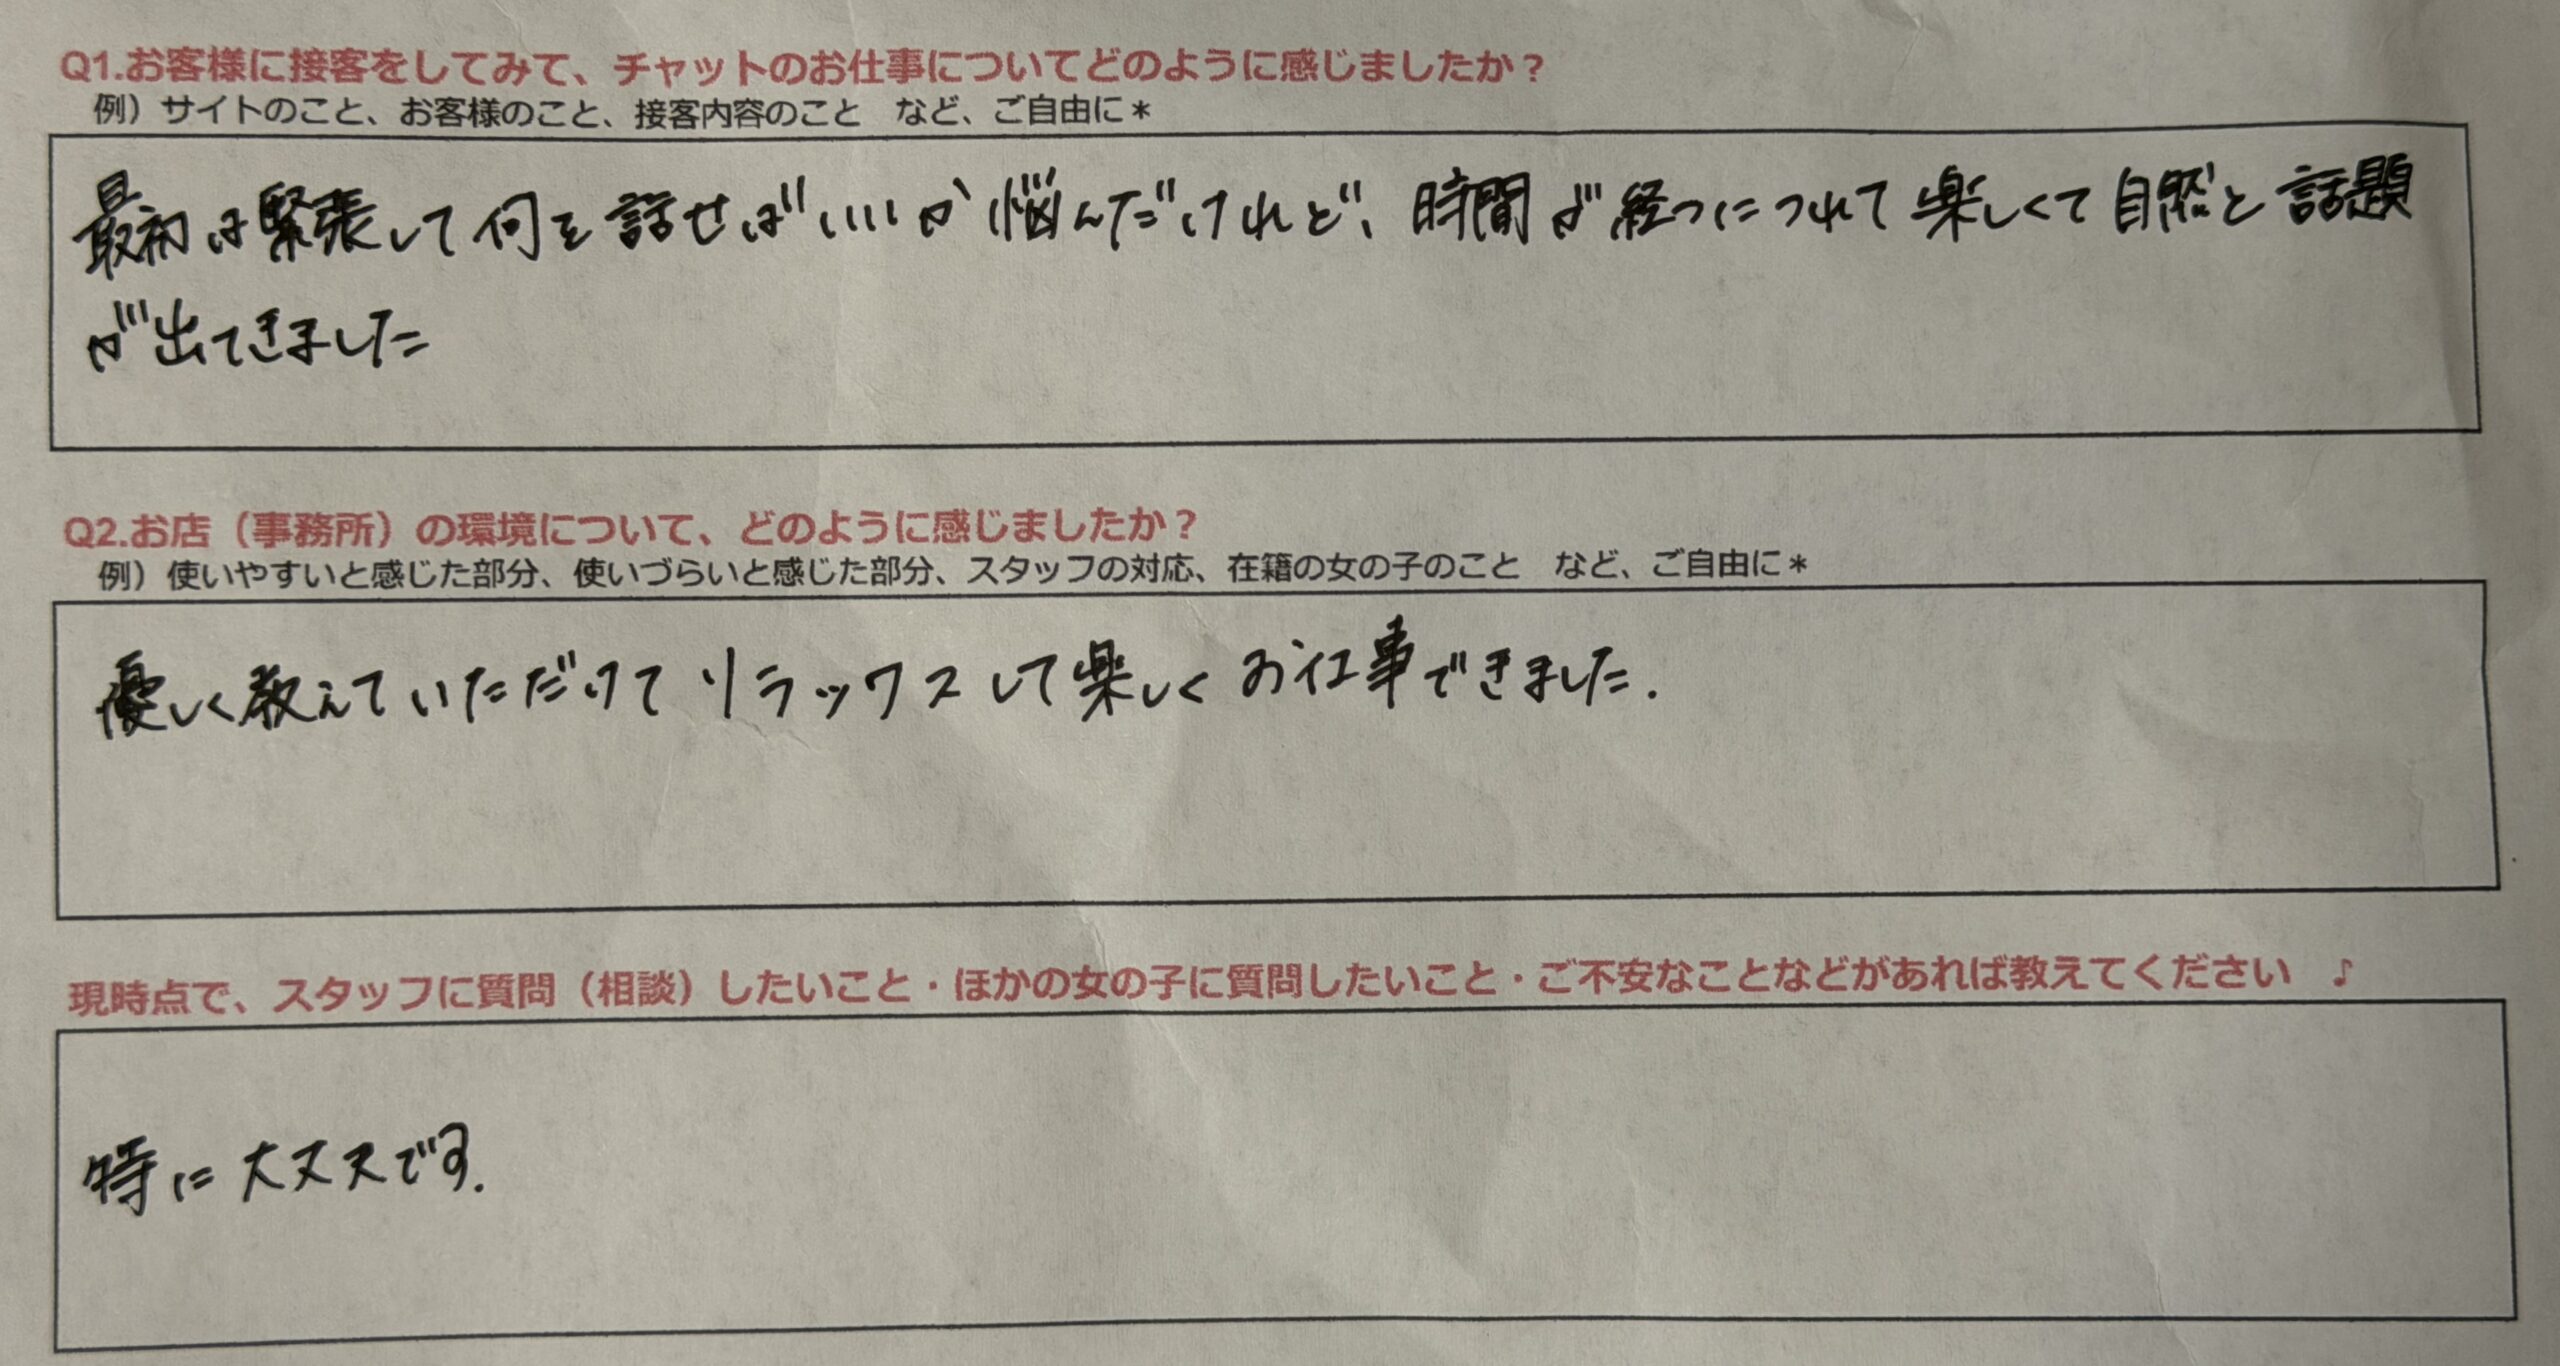 Q1.お客様に接客をしてみて、チャットのお仕事についてどのように感じましたか？
例）サイトのこと、お客様のこと、接客内容のこと　など、ご自由に＊
最初は緊張して何を話せばいいか悩んだけれど、時間が経つにつれて楽しくて自然と話題
が出てきました
Q2.お店（事務所）の環境について、どのように感じましたか？
例）使いやすいと感じた部分、使いづらいと感じた部分、スタッフの対応、在籍の女の子のこと　など、ご自由に＊
優しく教えていただけてリラックスして楽しくお仕事できました.
現時点で、スタッフに質問（相談）したいこと・ほかの女の子に質問したいこと・ご不安なことなどがあれば教えてください　♪
特に大丈夫です.